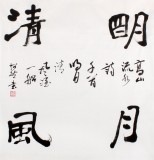 明月
清風
高山
流水
詩
千首
明月
清
風酒
一船